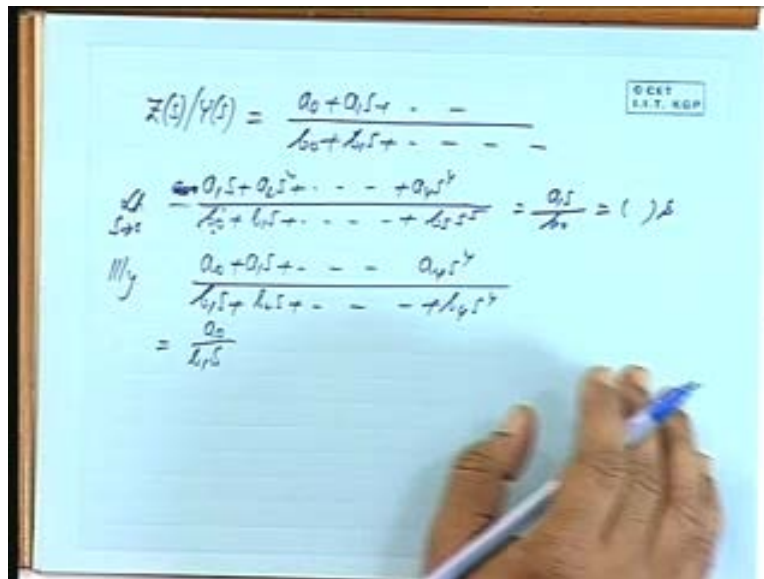 © CET
I.I.T. KGP
Z(s)/Y(s) = (a₀ + a₁s + - -) / (b₀ + b₁s + - - - -)
Lt s→0 (a₁s + a₂s² + - - - + a₄s⁴) / (b₀ + b₁s + - - - - + b₅s⁵) = a₁s / b₀ = ( ) s
|||ly (a₀ + a₁s + - - - a₄s⁴) / (b₁s + b₂s + - - - + b₄s⁴)
= a₀ / b₁s